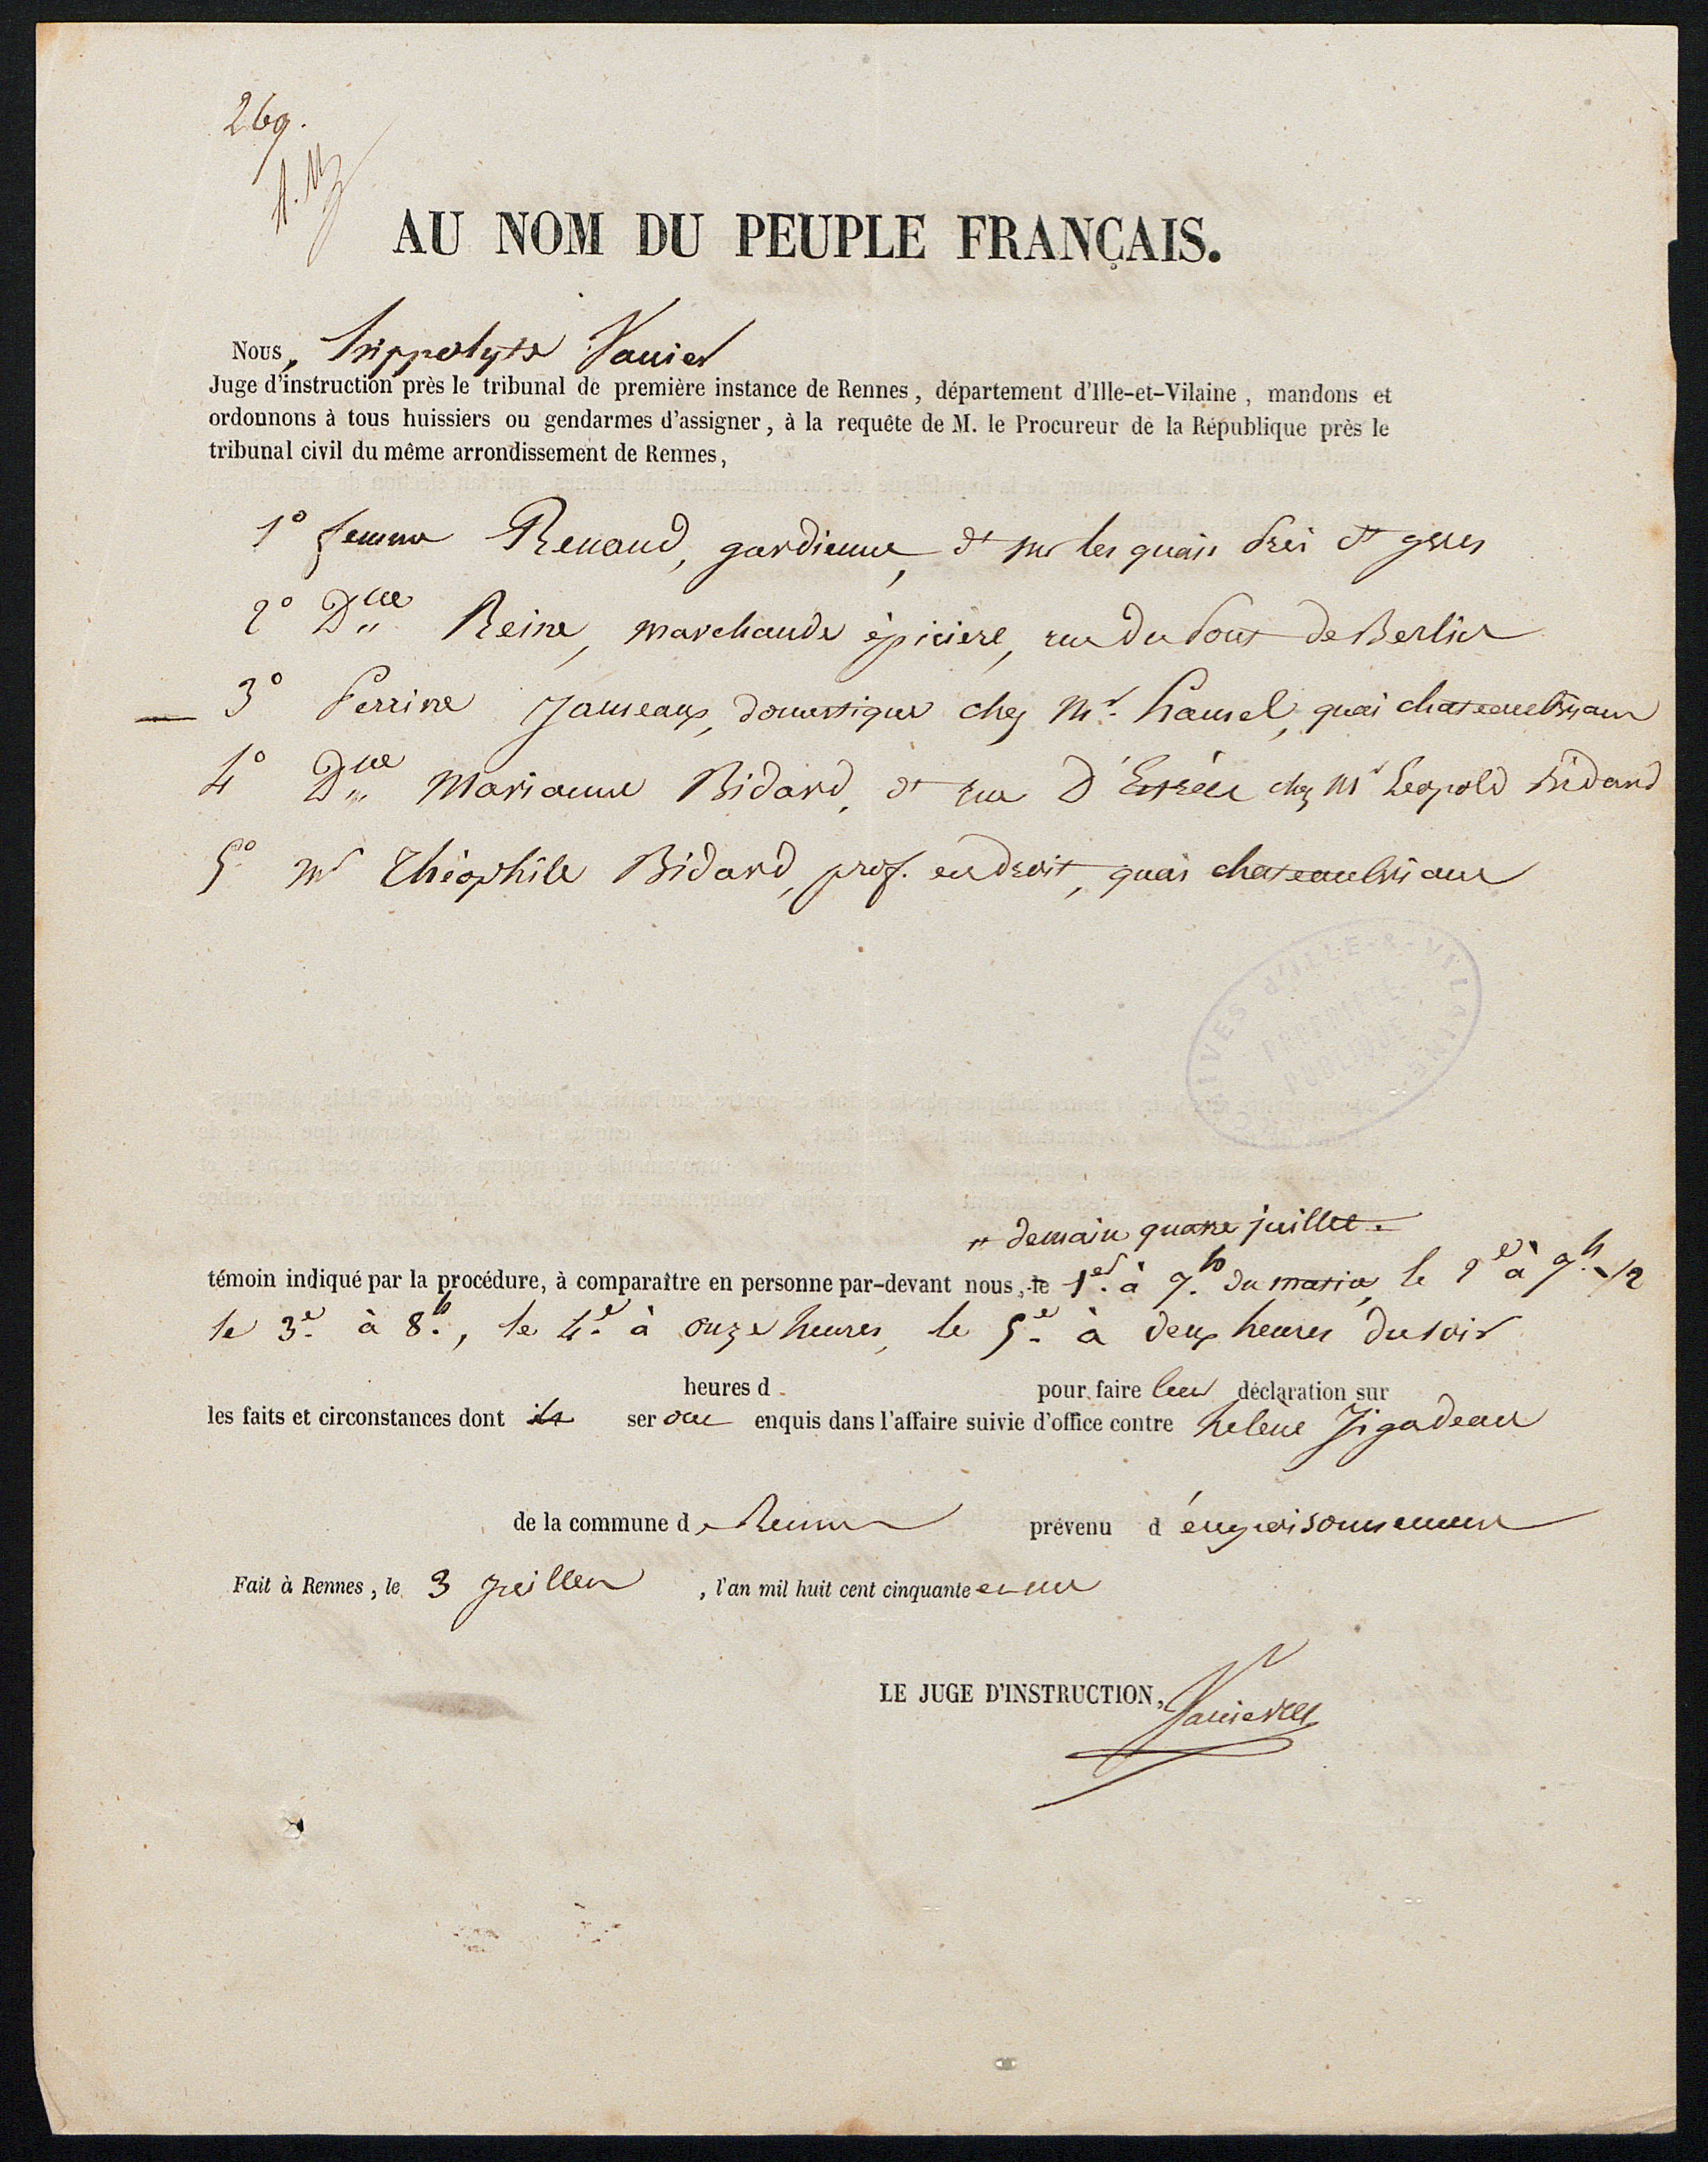 269.
AU NOM DU PEUPLE FRANÇAIS.
Nous, hippolyte Vanier
Juge d'instruction près le tribunal de première instance de Rennes, département d'Ille-et-Vilaine, mandons et
ordonnons à tous huissiers ou gendarmes d'assigner, à la requête de M. le Procureur de la République près le
tribunal civil du même arrondissement de Rennes,
1° femme Renaud, gardienne, dt sur les quais
2° Dlle Reine, marchande épicière, rue du Four de Berlin
3° Perrine Janseaux, domestique chez Mr. hamel, quai chateaubriant
4° Dlle Marianne Bidard, dt rue D'Estrées chez Mr Leopold Bidard
5° Mr Théophile Bidard, prof. en droit, quai chateaubriant
ARCHIVES D'ILLE-&-VILAINE
PROPRIÉTÉ
PUBLIQUE
demain quatre juillet.
témoin indiqué par la procédure, à comparaître en personne par-devant nous, le 1er. à 7.h du matin, le 2e à 7.h 1/2
le 3e. à 8.h, le 4.e à onze heures, le 5.e à deux heures du soir
heures d pour faire leur déclaration sur
les faits et circonstances dont ils seront enquis dans l'affaire suivie d'office contre helene Jigadeau
de la commune de Rennes prévenu d'empoisonnement
Fait à Rennes, le 3 juillet, l'an mil huit cent cinquante et un
LE JUGE D'INSTRUCTION,